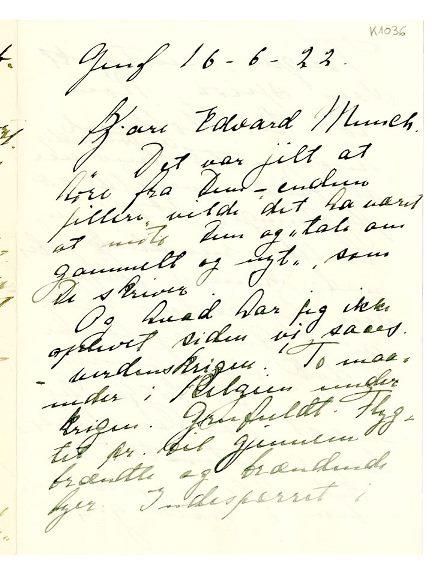 K1036
Genf 16-6-22.
Kjære Edvard Munch.
Det var gilt at
høre fra Dem - endnu
gillere vilde det ha været
at møte Dem og "tale om
gammelt og nyt", som
De skriver.
Og hvad har jeg ikke
oplevet siden vi saaes.
- verdenskrigen. To maa-
neder i Belgien under
krigen. Grufuldt. Flyg-
tet pr. bil gjennem
brændte og brændende
byer. Indesperret i